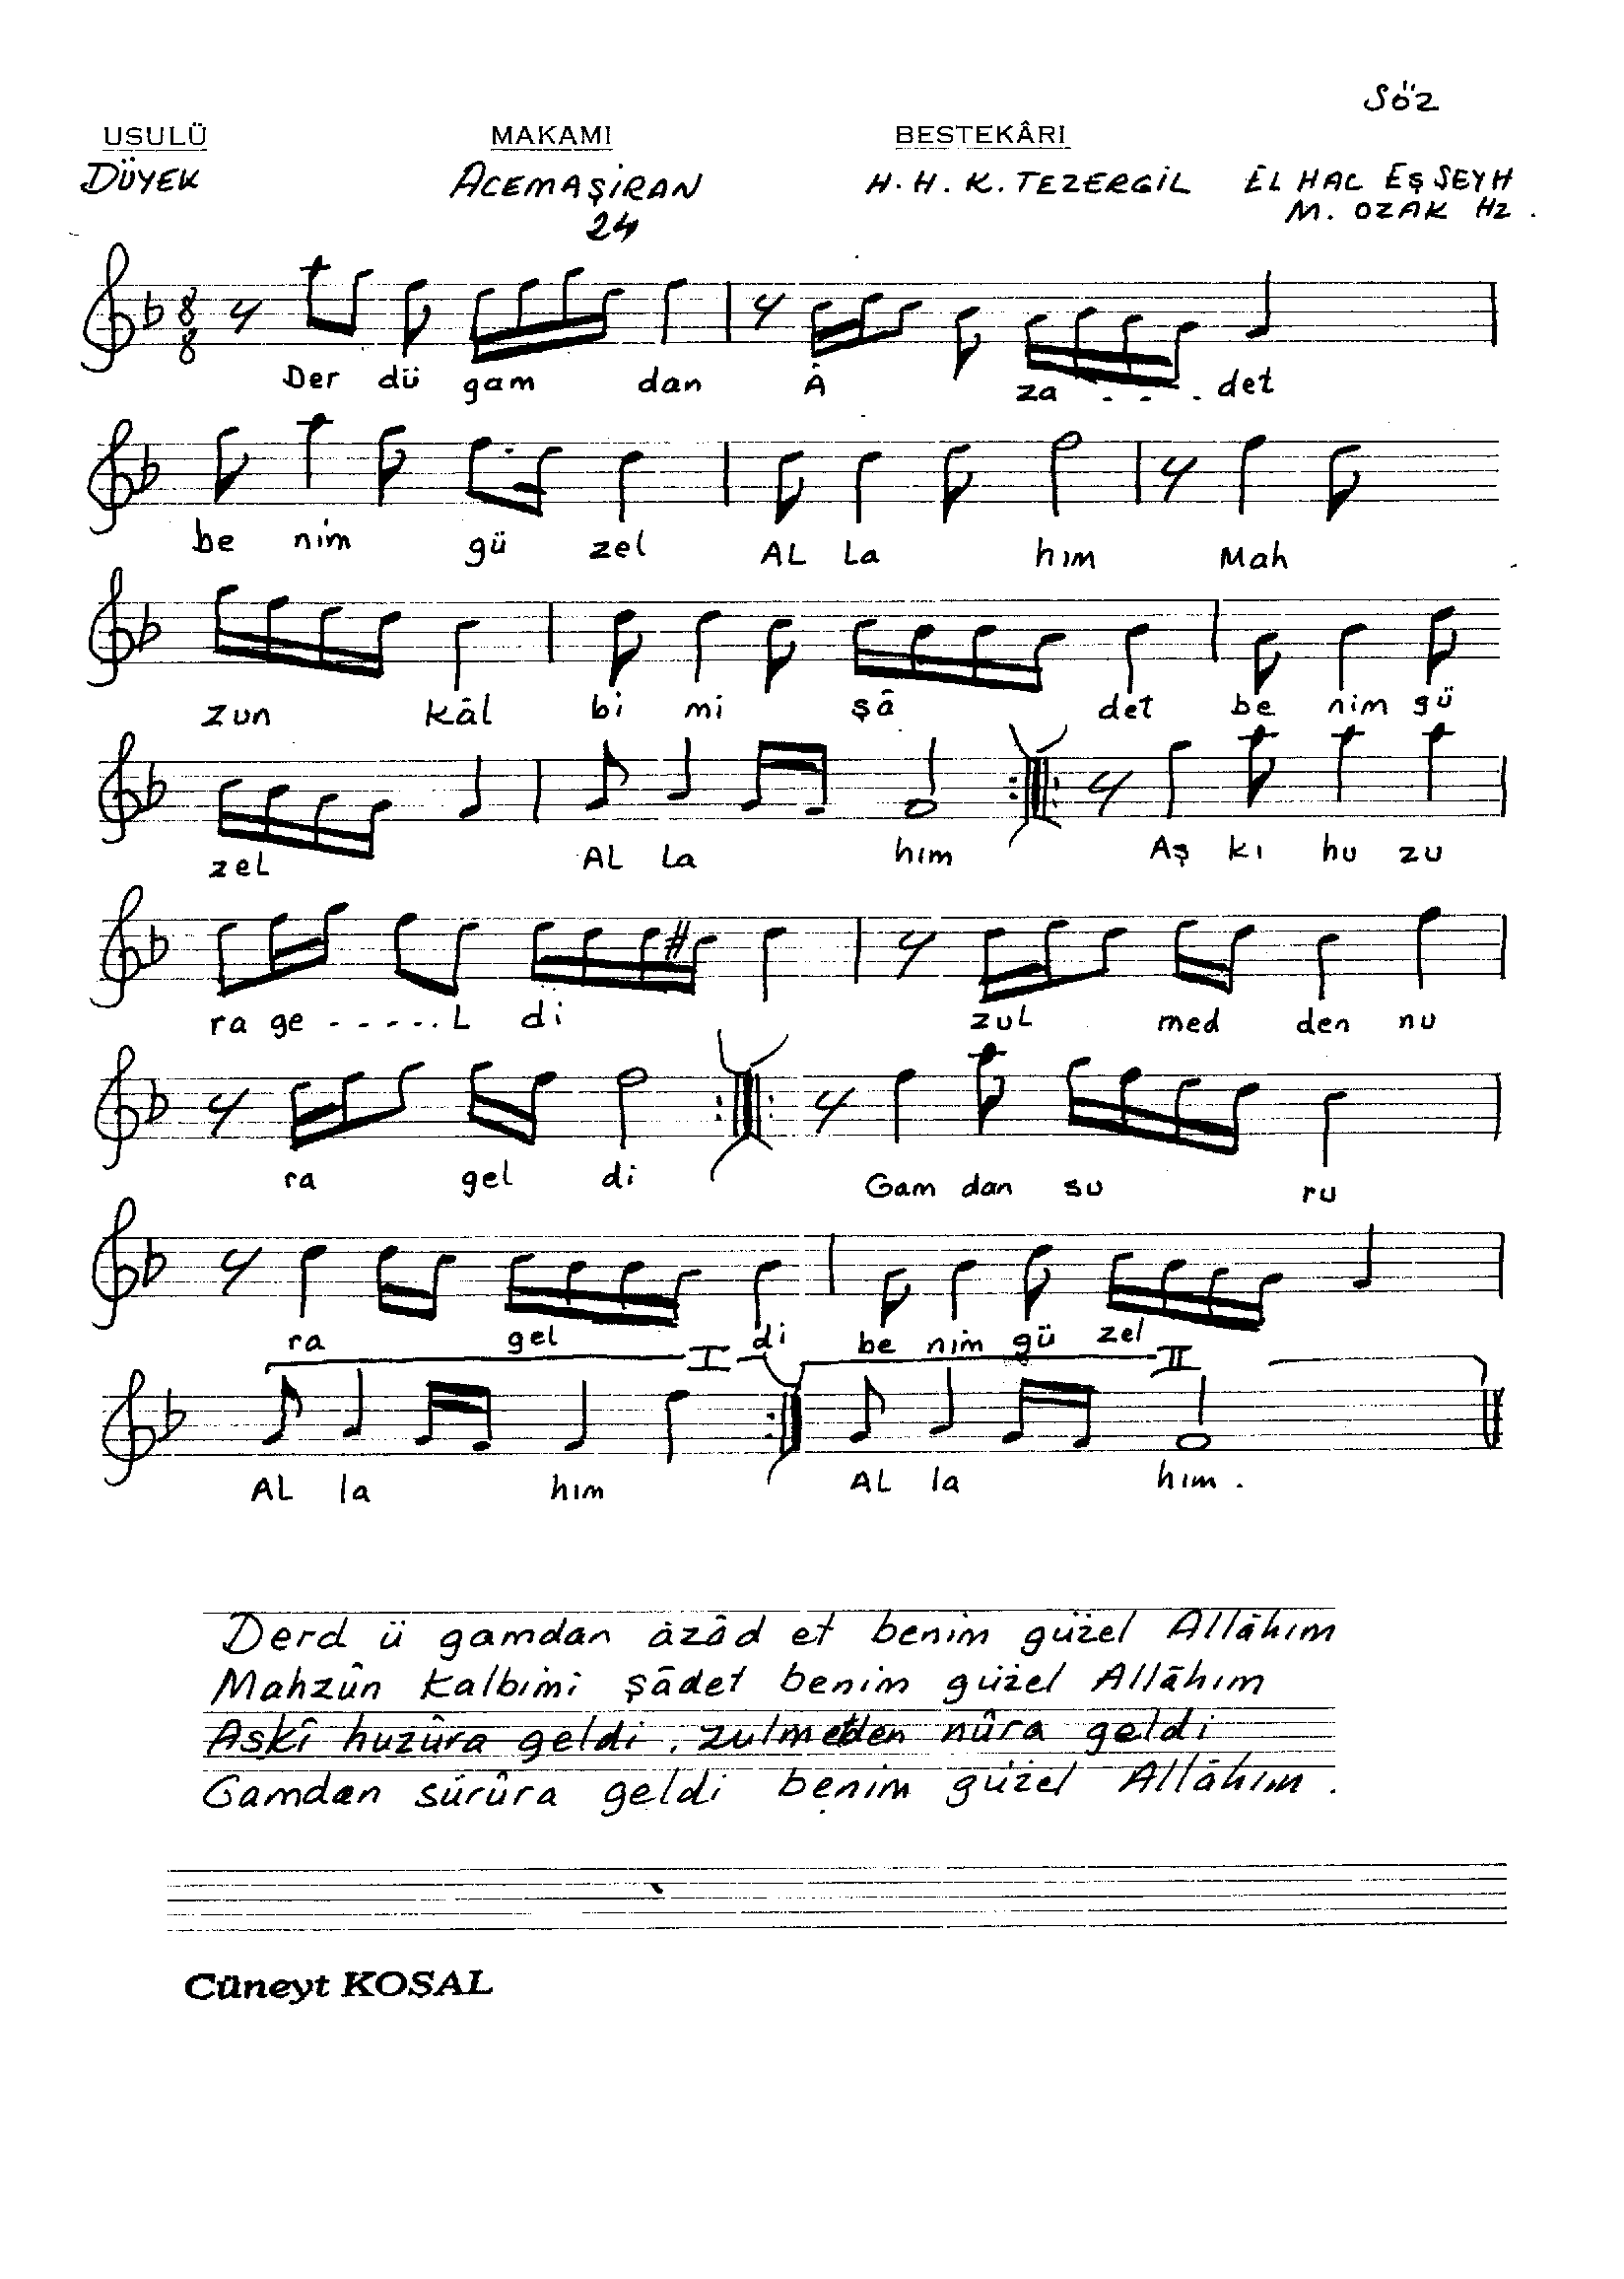 Söz
USULÜ MAKAMI BESTEKÂRI
DÜYEK ACEMAŞİRAN H. H. K. TEZERGİL EL HAC EŞ SEYH
24 M. OZAK Hz.
8
8
Der dü gam dan Â za - - - det
be nim gü zel AL La hım Mah
zun kâl bi mi şâ det be nim gü
zel AL La hım Aş kı hu zu
ra ge - - - - - L di zul med den nu
ra gel di Gam dan su ru
ra gel di be nim gü zel
I II
AL la hım AL la hım.
Derd ü gamdan âzâd et benim güzel Allâhım
Mahzûn kalbimi şâdet benim güzel Allâhım
Aşkî huzûra geldi, zulmetden nûra geldi
Gamdan sürûra geldi benim güzel Allâhım.
Cüneyt KOSAL